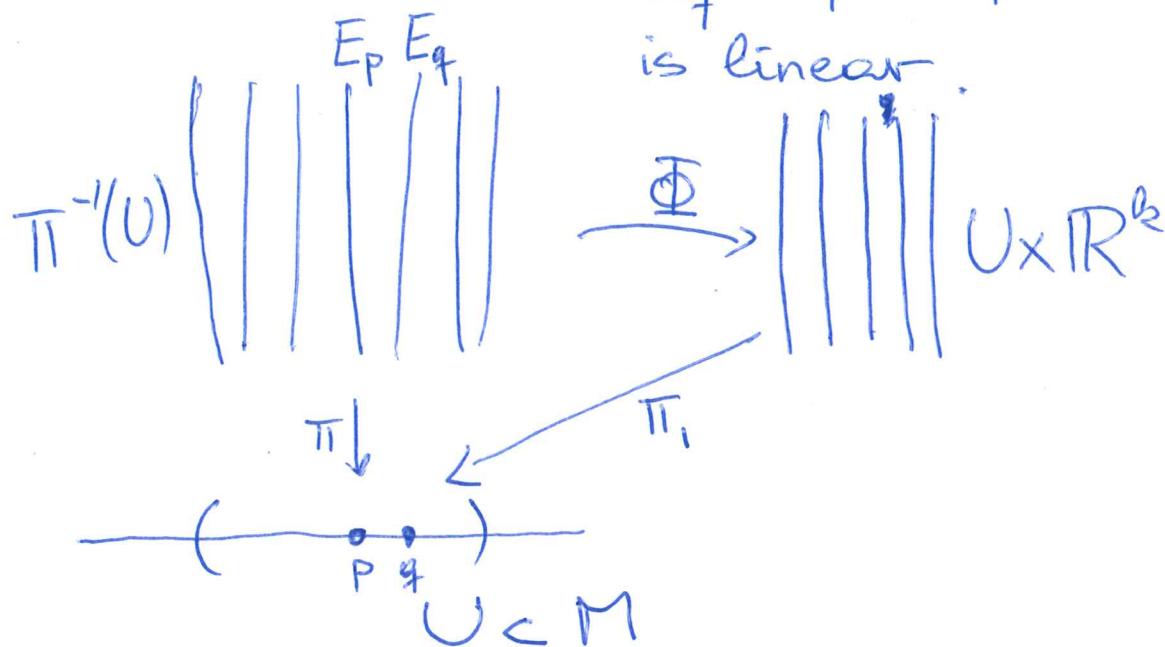 E_p E_q
is linear.
π⁻¹(U)
Φ
U × ℝᵏ
π
π₁
p q
U ⊂ M